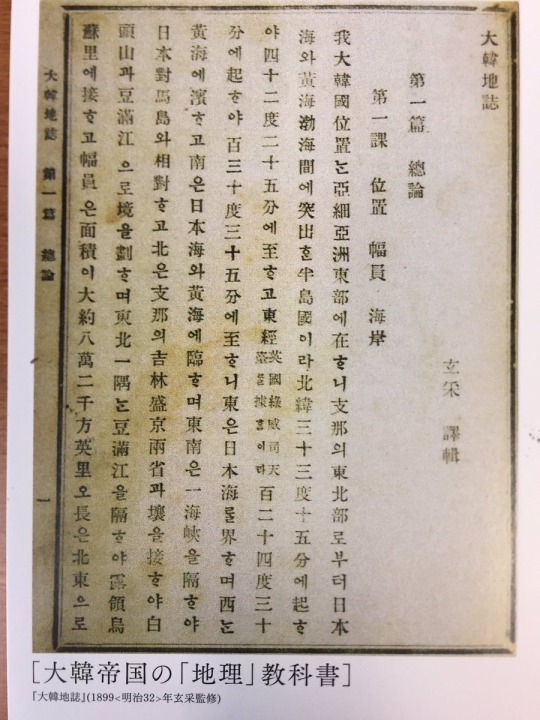 大韓地誌
第一篇　總論
玄采　譯輯
第一課　位置　幅員　海岸
我大韓國位置는亞細亞洲東部에在ᄒᆞ니支那의東北部로부터日本
海와黃海渤海間에突出ᄒᆞᆫ半島國이라北緯三十三度十五分에起ᄒᆞ
야四十二度二十五分에至ᄒᆞ고東經英國綠威司天臺를據홈이라百二十四度三十
分에起ᄒᆞ야百三十度三十五分에至ᄒᆞ니東은日本海를界ᄒᆞ며西는
黃海에濱ᄒᆞ고南은日本海와黃海에臨ᄒᆞ며東南은一海峽을隔ᄒᆞ야
日本對馬島와相對ᄒᆞ고北은支那의吉林盛京兩省과壤을接ᄒᆞ야白
頭山과豆滿江으로境을劃ᄒᆞ며東北一隅는豆滿江을隔ᄒᆞ야露領烏
蘇里에接ᄒᆞ고幅員은面積이大約八萬二千方英里오長은北東으로
大韓地誌　第一篇　總論
一
［大韓帝国の「地理」教科書］
『大韓地誌』(1899<明治32>年玄采監修)